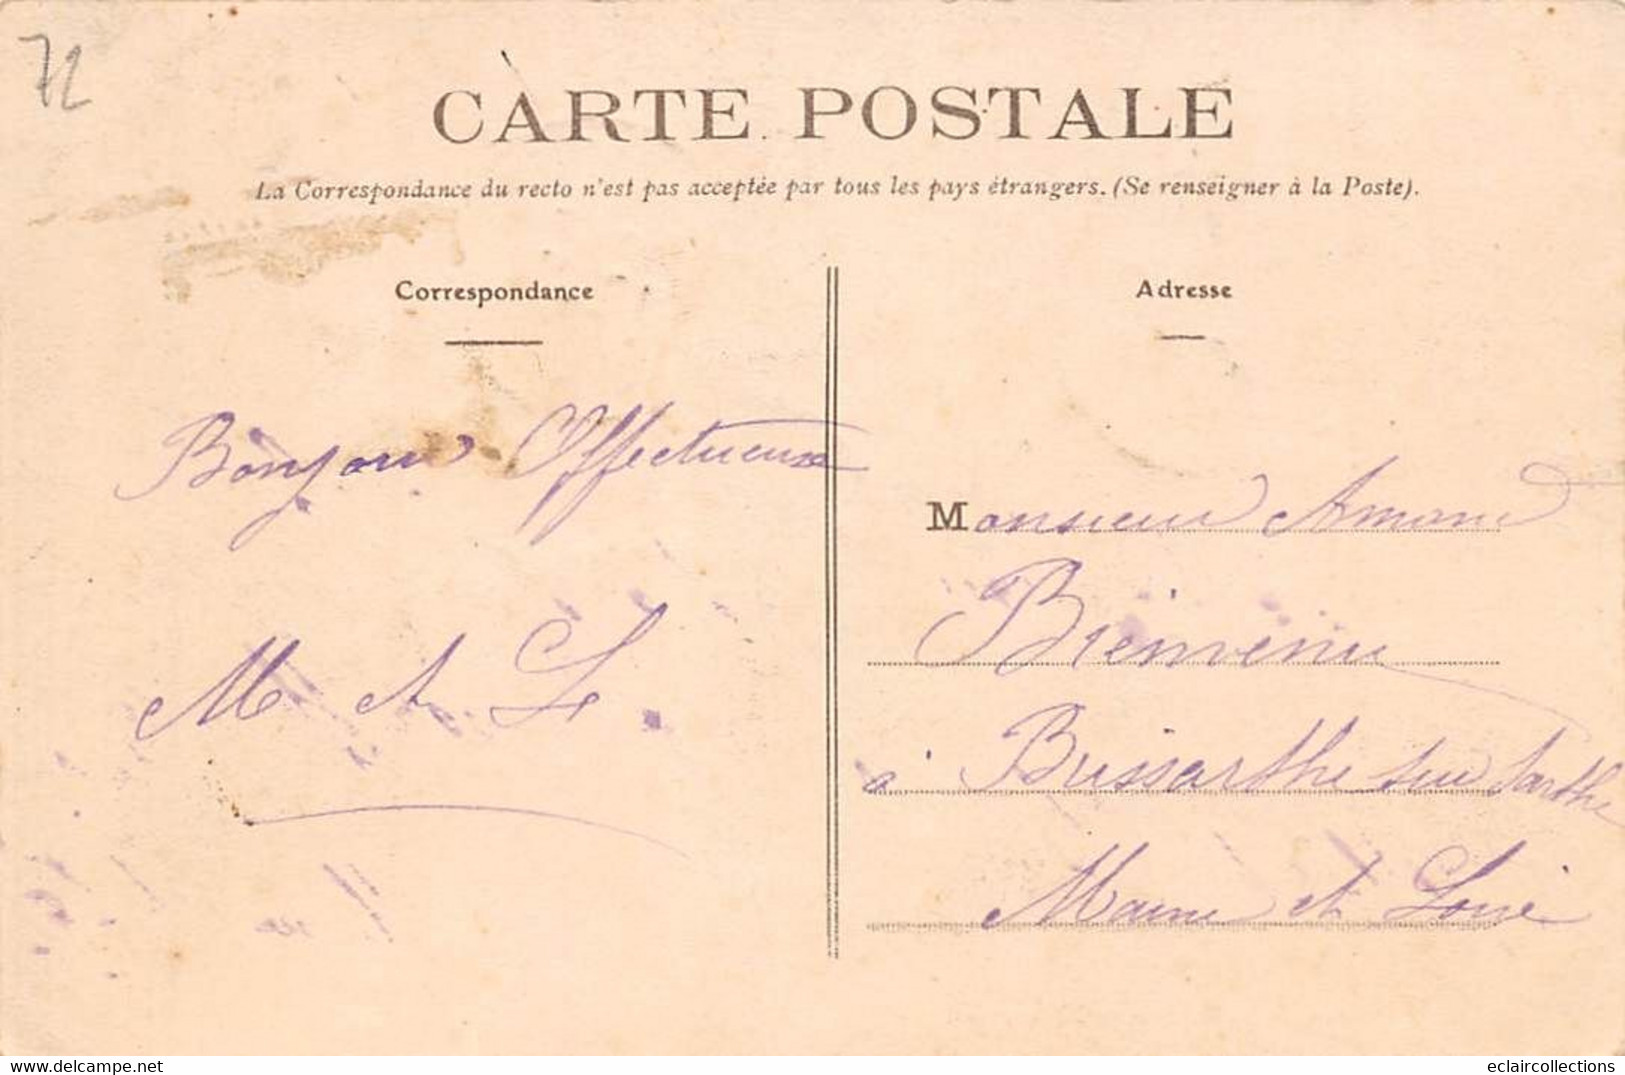 72
CARTE POSTALE
La Correspondance du recto n'est pas acceptée par tous les pays étrangers. (Se renseigner à la Poste).
Correspondance
Bonjour Affectueux
M et L.
Adresse
Monsieur Amand
Bienvenu
à Brissarthe sur Sarthe
Maine et Loire
eclaircollections